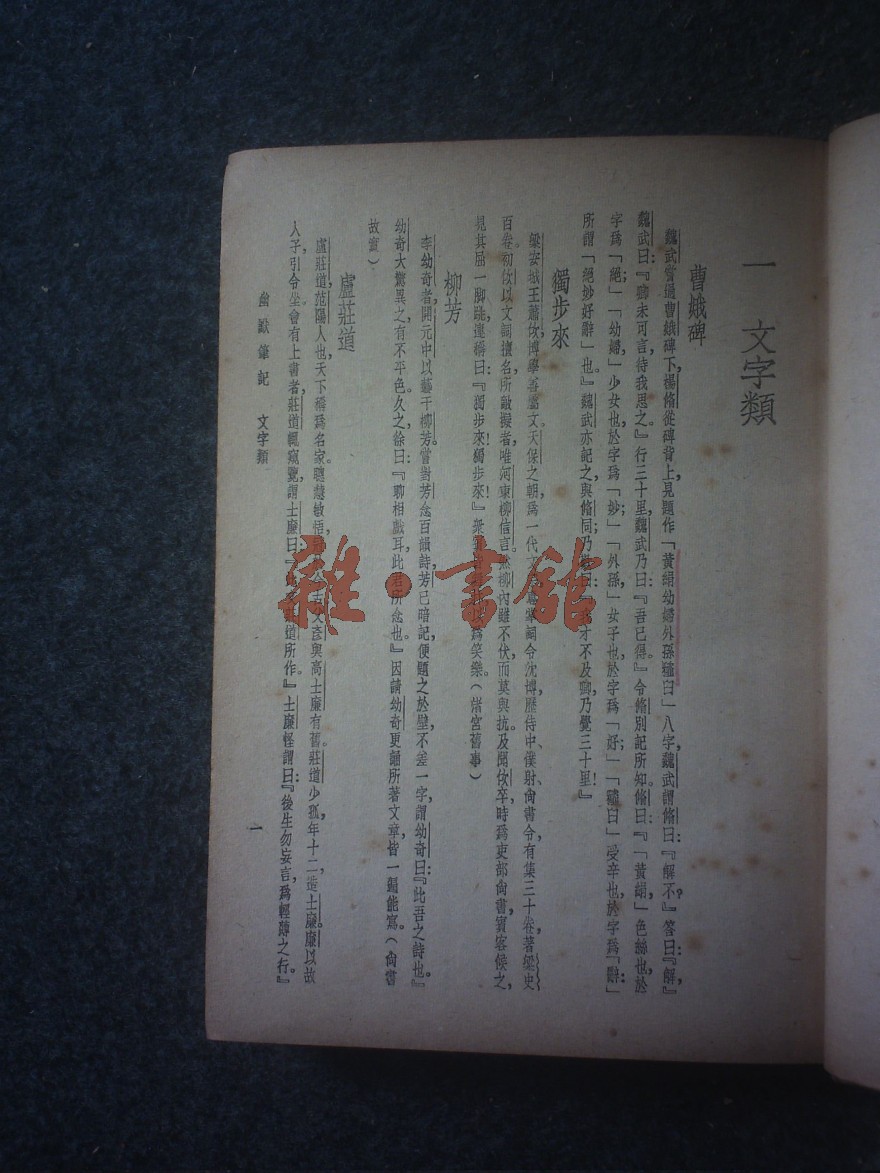 一　文字類
曹娥碑
魏武嘗過曹娥碑下，楊脩從碑背上，見題作『黃絹幼婦外孫虀臼』八字，魏武謂脩曰：『解不？』答曰：『解。』
魏武曰：『卿未可言，待我思之。』行三十里，魏武乃曰：『吾已得。』令脩別記所知。脩曰：『「黃絹」色絲也，於
字爲「絕；」「幼婦，」少女也，於字爲「妙；」「外孫，」女子也，於字爲「好；」「虀臼」受辛也，於字爲「辭：」
所謂「絕妙好辭」也。』魏武亦記之，與脩同；乃歎曰：『我才不及卿，乃覺三十里！』
獨步來
梁安城王蕭佽，博學善屬文。天保之朝，爲一代文
詞令沈博，歷侍中、僕射、尙書令，有集三十卷，著梁史
百卷。初佽以文詞擅名，所敵擬者，唯河東柳信言。然柳內雖不伏，而莫與抗。及聞佽卒，時爲吏部尙書，賓客候之，
見其屈一脚跳，連稱曰：『獨步來！獨步來！』衆
爲笑樂。（渚宮舊事）
柳芳
李幼奇者，開元中以藝干柳芳。嘗對芳念百韻詩，芳已暗記，便題之於壁，不差一字，謂幼奇曰：『此吾之詩也。』
幼奇大驚異之，有不平色。久之，徐曰：『聊相戲耳，此君所念也。』因請幼奇更誦所著文章，皆一遍能寫。（尙書
故實）
盧莊道
盧莊道，范陽人也，天下稱爲名家。聰慧敏悟，
彥與高士廉有舊。莊道少孤，年十二，造士廉。廉以故
人子，引令坐。會有上書者，莊道竊窺覽，謂士廉曰：『
莊道所作。』士廉怪謂曰：『後生勿妄言，爲輕薄之行。』
幽默筆記　文字類
一
雜·書館